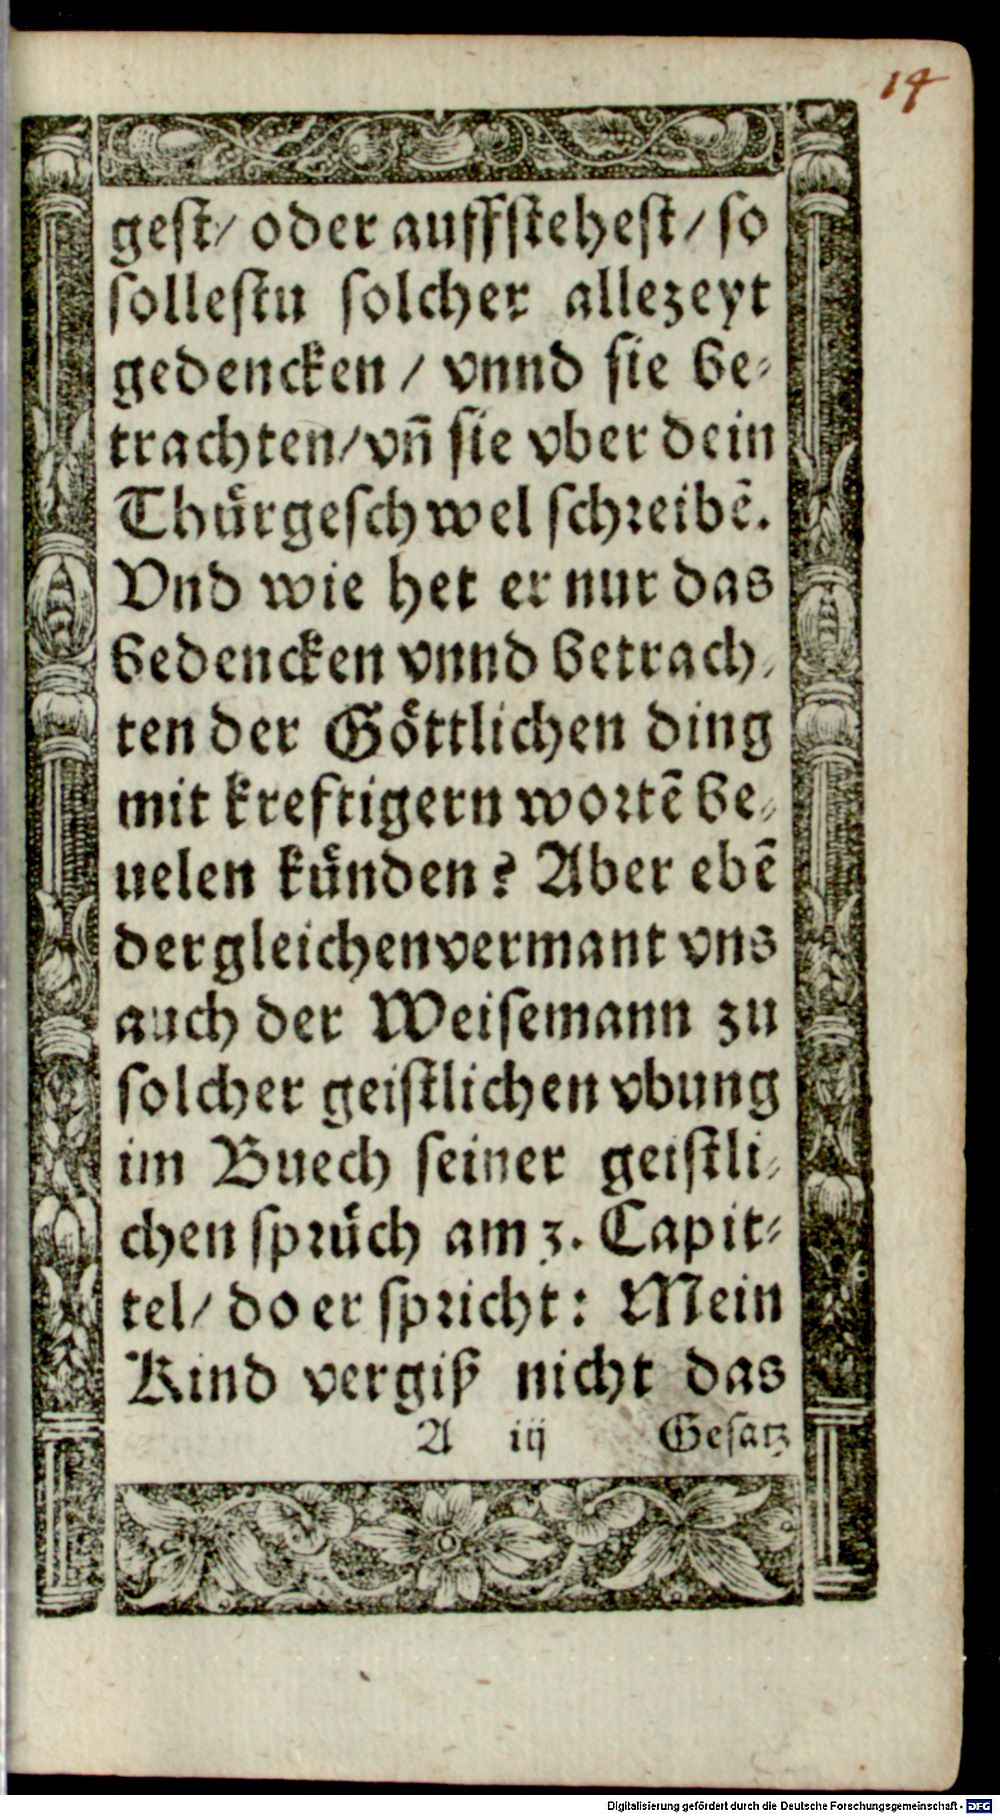 14
gest/ oder auffstehest/ so
sollestu solcher allezeyt
gedencken / vnnd sie be-
trachten/vn̄ sie vber dein
Thuͤrgeschwel schreibē.
Vnd wie het er nur das
bedencken vnnd betrach-
ten der Goͤttlichen ding
mit kreftigern wortē be-
uelen kuͤnden? Aber ebē
dergleichen vermant vns
auch der Weisemann zu
solcher geistlichen vbung
im Buech seiner geistli-
chen spruͤch am 3. Capit-
tel/ do er spricht: Mein
Kind vergiß nicht das
A iij Gesatz
Digitalisierung gefördert durch die Deutsche Forschungsgemeinschaft - DFG